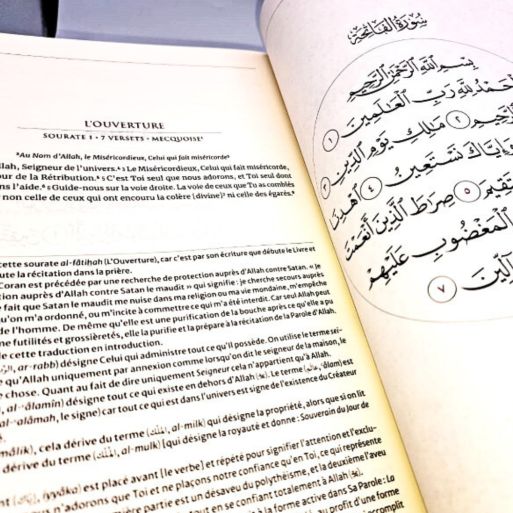 L'OUVERTURE
SOURATE 1 • 7 VERSETS • MECQUOISE¹
²Au Nom d'Allah, le Miséricordieux, Celui qui fait miséricorde³
Seigneur de l'univers.⁴ Le Miséricordieux, Celui qui fait miséricorde,
de la Rétribution.⁵ C'est Toi seul que nous adorons, et Toi seul dont
l'aide. Guide-nous sur la voie droite. La voie de ceux que Tu as comblés
non celle de ceux qui ont encouru la colère [divine] ni celle des égarés.
cette sourate al-fâtihah (L'Ouverture), car c'est par son écriture que débute le Livre et
la récitation dans la prière.
Coran est précédée par une recherche de protection auprès d'Allah contre Satan. « Je
auprès d'Allah contre Satan le maudit » qui signifie : je cherche secours auprès
fait que Satan le maudit me nuise dans ma religion ou ma vie mondaine, m'empêche
m'a ordonné, ou m'incite à commettre ce qui m'a été interdit. Car seul Allah peut
de l'homme. De même qu'elle est une purification de la bouche après ce qu'elle a pu
futilités et grossièretés, elle la purifie et la prépare à la récitation de la Parole d'Allah.
de cette traduction en introduction.
ar-rabb) désigne Celui qui administre tout ce qu'Il possède. On utilise le terme sei-
qu'Allah uniquement par annexion comme lorsqu'on dit le seigneur de la maison, le
chose. Quant au fait de dire uniquement Seigneur cela n'appartient qu'à Allah.
al-'âlamîn) désigne tout ce qui existe en dehors d'Allah
al-'alâmah, le signe) car tout ce qui est dans l'univers est signe de l'existence du Créateur
cela dérive du terme al-milk) qui désigne la propriété, alors que si on lit
dérive du terme al-mulk) [qui désigne la royauté et donne : Souverain du Jour de
iyyâka) est placé avant [le verbe] et répété pour signifier l'attention et l'exclu-
n'adorons que Toi et ne plaçons notre confiance qu'en Toi, ce qui représente
partie est un désaveu du polythéisme, et la deuxième l'aveu
tout en se confiant totalement à Allah
à la forme active dans Sa Parole : La
au profit d'une forme
سُورَةُ الفَاتِحَةِ
بِسْمِ اللَّهِ الرَّحْمَٰنِ الرَّحِيمِ
لِلَّهِ رَبِّ الْعَالَمِينَ ١
٢ مَالِكِ يَوْمِ الدِّينِ ٣
وَإِيَّاكَ نَسْتَعِينُ ٤ اهْدِنَا
٥ صِرَاطَ الَّذِينَ أَنْعَمْتَ
الْمَغْضُوبِ عَلَيْهِمْ
٧